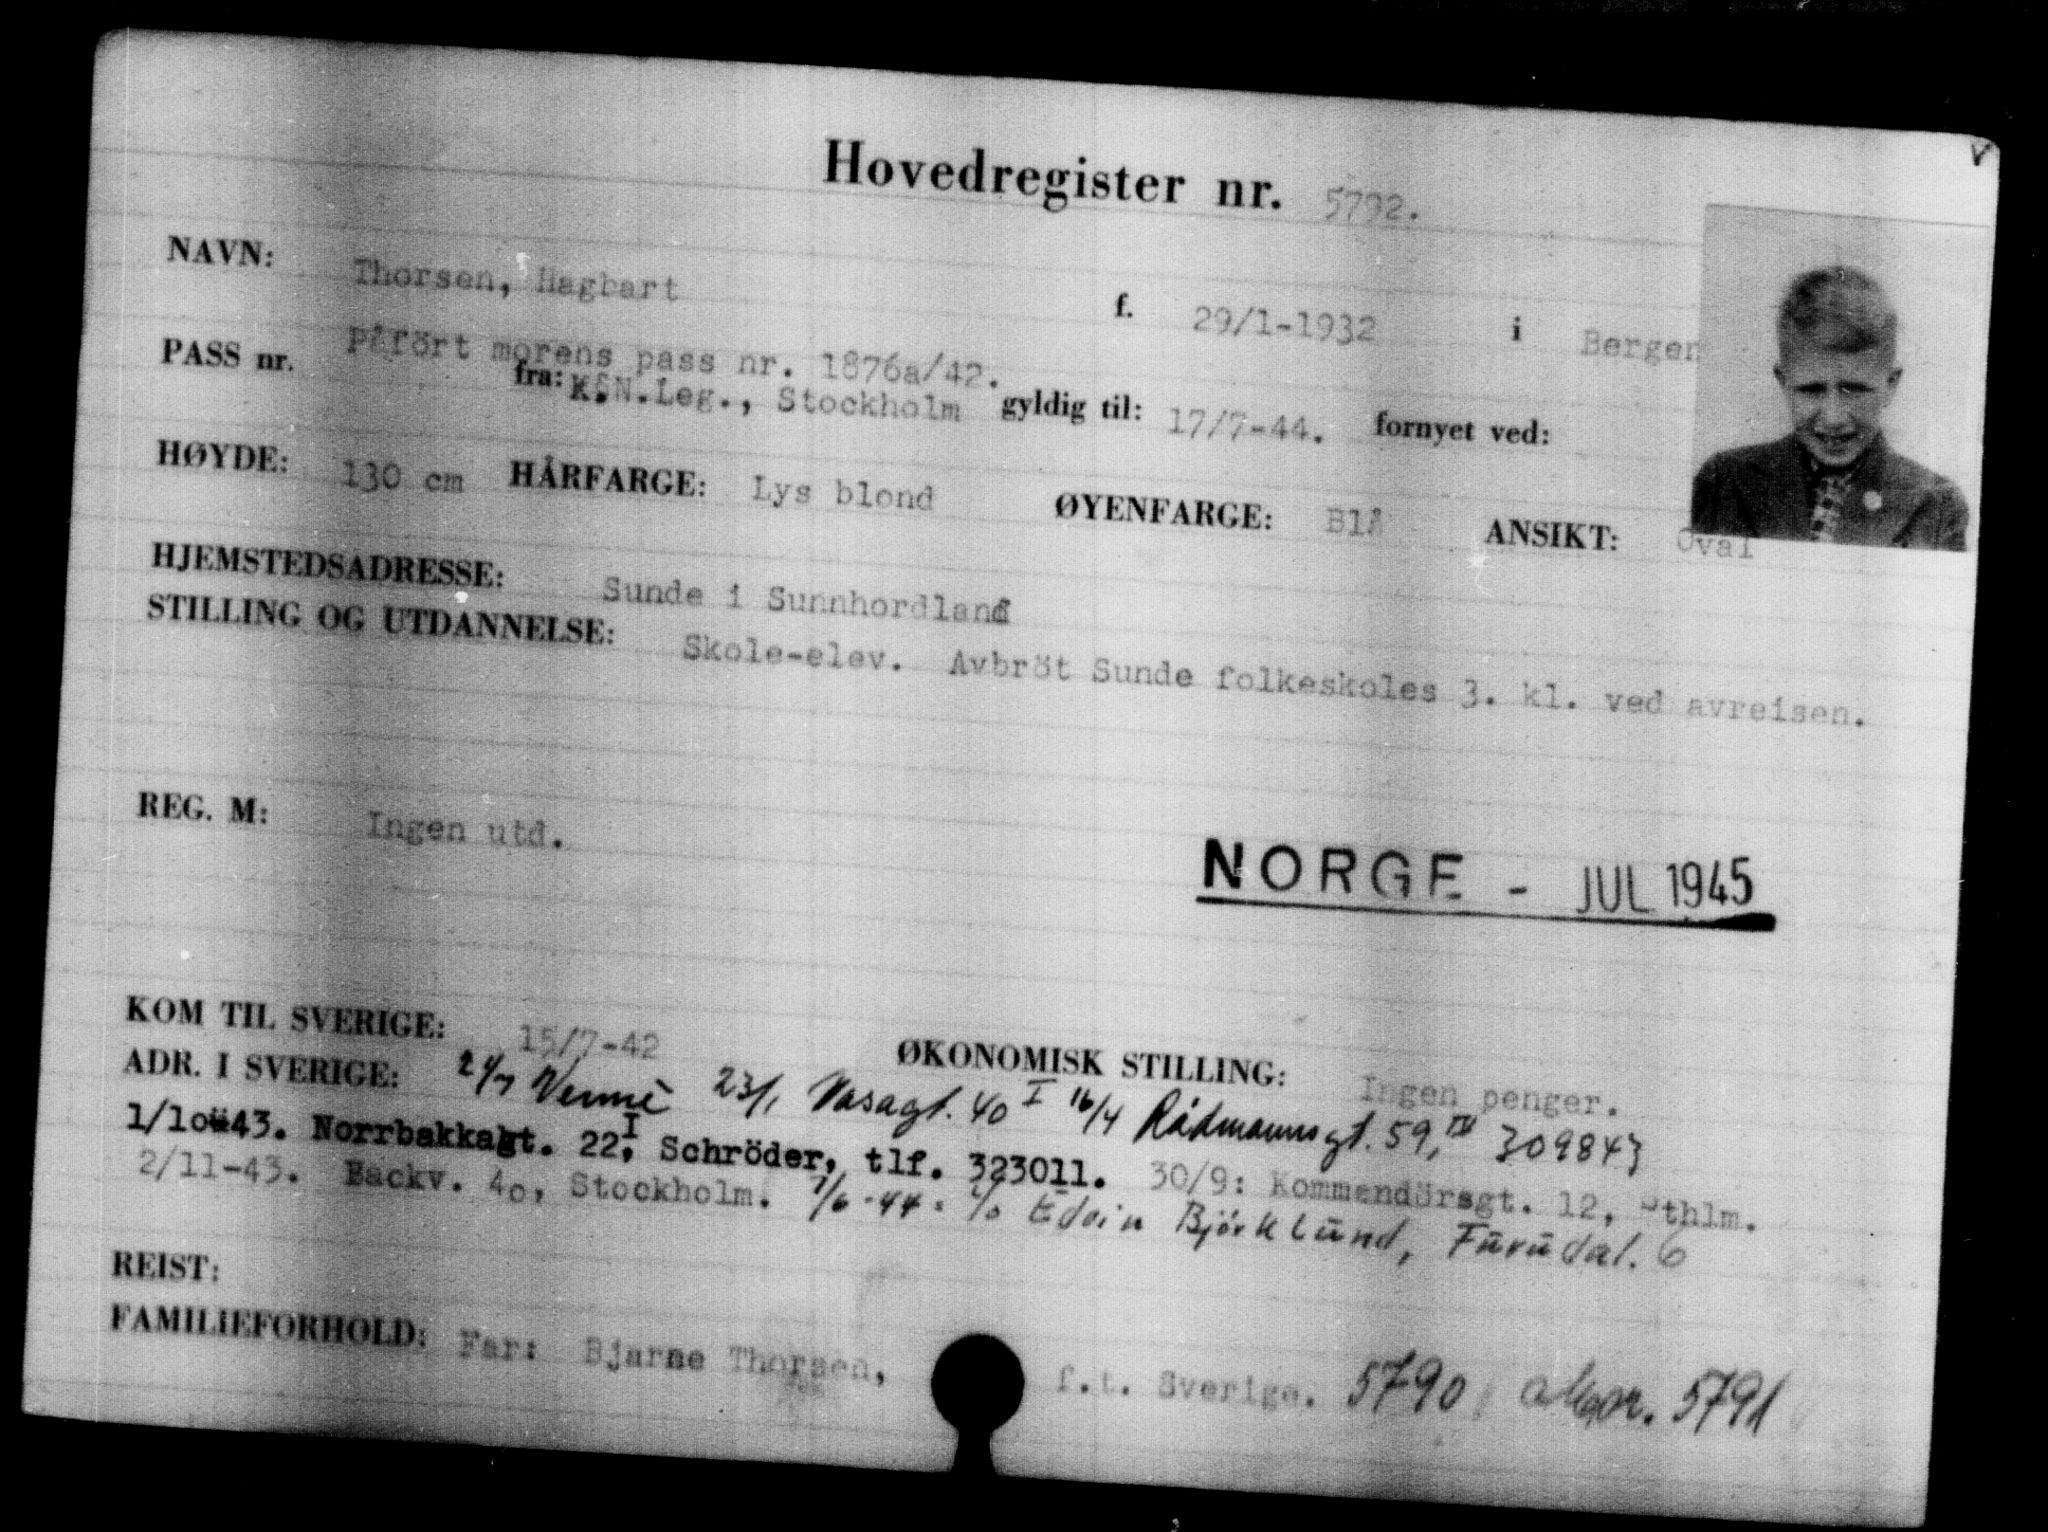 Hovedregister nr. 5792.
NAVN: Thorsen, Hagbart f. 29/1-1932 i Bergen
PASS nr. Påfört morens pass nr. 1876a/42.
fra: K.N.Leg., Stockholm gyldig til: 17/7-44. fornyet ved:
HØYDE: 130 cm HÅRFARGE: Lys blond ØYENFARGE: Blå ANSIKT: Oval
HJEMSTEDSADRESSE: Sunde i Sunnhordland
STILLING OG UTDANNELSE: Skole-elev. Avbröt Sunde folkeskoles 3. kl. ved avreisen.
REG. M: Ingen utd.
NORGE - JUL 1945
KOM TIL SVERIGE: 15/7-42 ØKONOMISK STILLING: Ingen penger.
ADR. I SVERIGE: 23/1 Vasagt. 40 I 16/4 Rådmannsgt. 59, IV 309843
1/10-43. Norrbakkagt. 22, I Schröder, tlf. 323011. 30/9: Kommendörsgt. 12, Sthlm.
2/11-43. Backv. 40, Stockholm. 7/6-44: c/o Edvin Björklund, Furudal. 6
REIST:
FAMILIEFORHOLD: Far: Bjarne Thorsen, f.t. Sverige. 5790 Mor. 5791